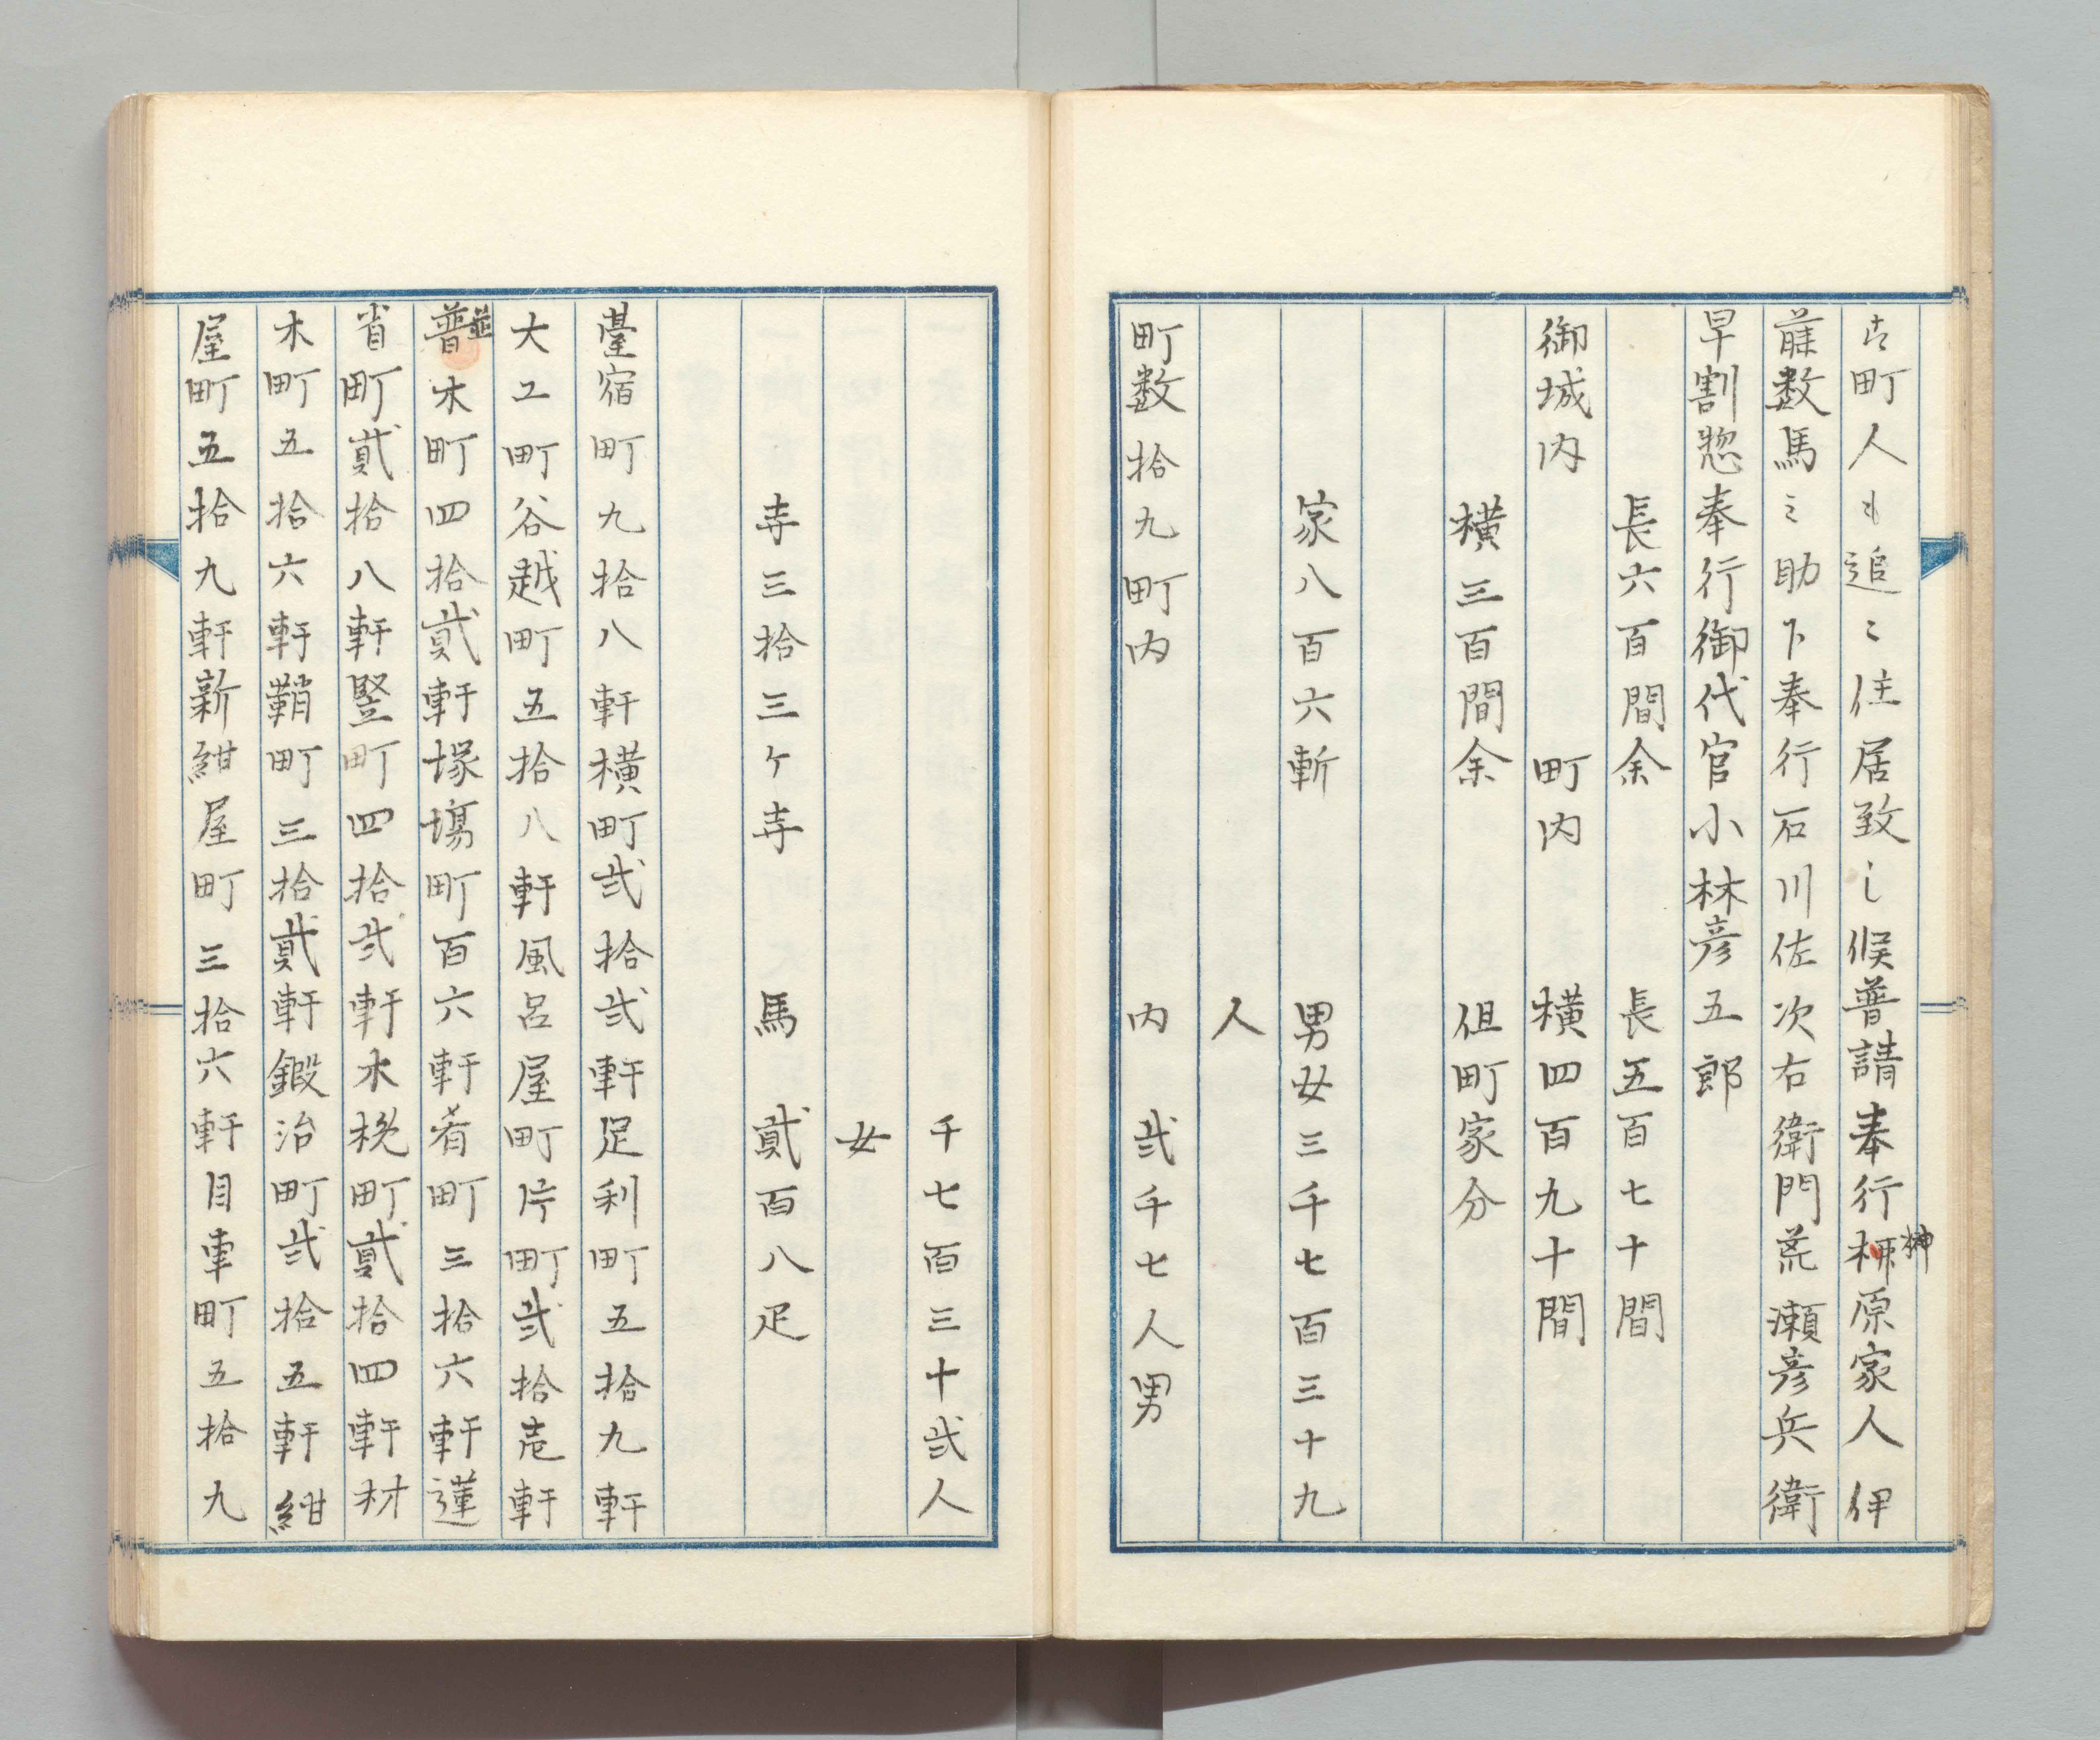 古町人も追〻住居致し候普請奉行栁原家人伊
榊
藤数馬之助下奉行石川佐次右衛門荒瀬彦兵衛
早割惣奉行御代官小林彦五郎
長六百間余　長五百七十間
御城内　町内　横四百九十間
横三百間余　但町家分
家八百六斬　男女三千七百三十九
人
町数拾九町内　内　弐千七人男
千七百三十弐人
女
寺三拾三ケ寺　馬　貳百八疋
臺宿町九拾八軒横町弐拾弐軒足利町五拾九軒
大工町谷越町五拾八軒風呂屋町片町弐拾壱軒
並
普木町四拾貳軒塚場町百六軒肴町三拾六軒蓮
省町貳拾八軒竪町四拾弐軒木挽町貳拾四軒材
木町五拾六軒鞘町三拾貳軒鍛冶町弐拾五軒紺
屋町五拾九軒新紺屋町三拾六軒目車町五拾九